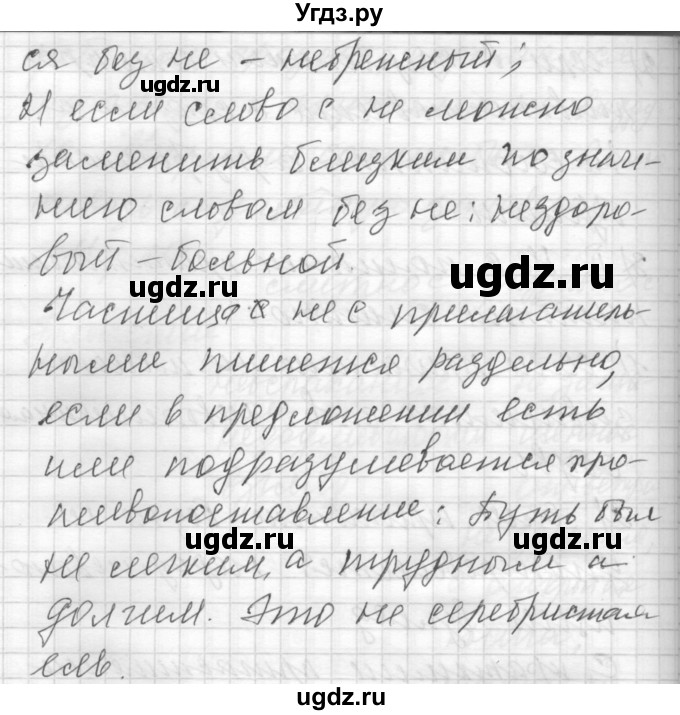 Угдз.ру
ся без не – небрежный;
2) если слово с не можно
заменить близким по значе-
нию словом без не: нездоро-
вый – больной.
Частица не с прилагатель-
ными пишется раздельно,
если в предложении есть
или подразумевается про-
тивопоставление: Путь был
не легким, а трудным а
долгим. Это не серебристая
ель.
ugdz.ru
ugdz.ru
ugdz.ru
ugdz.ru
ugdz.ru
ugdz.ru
ugdz.ru